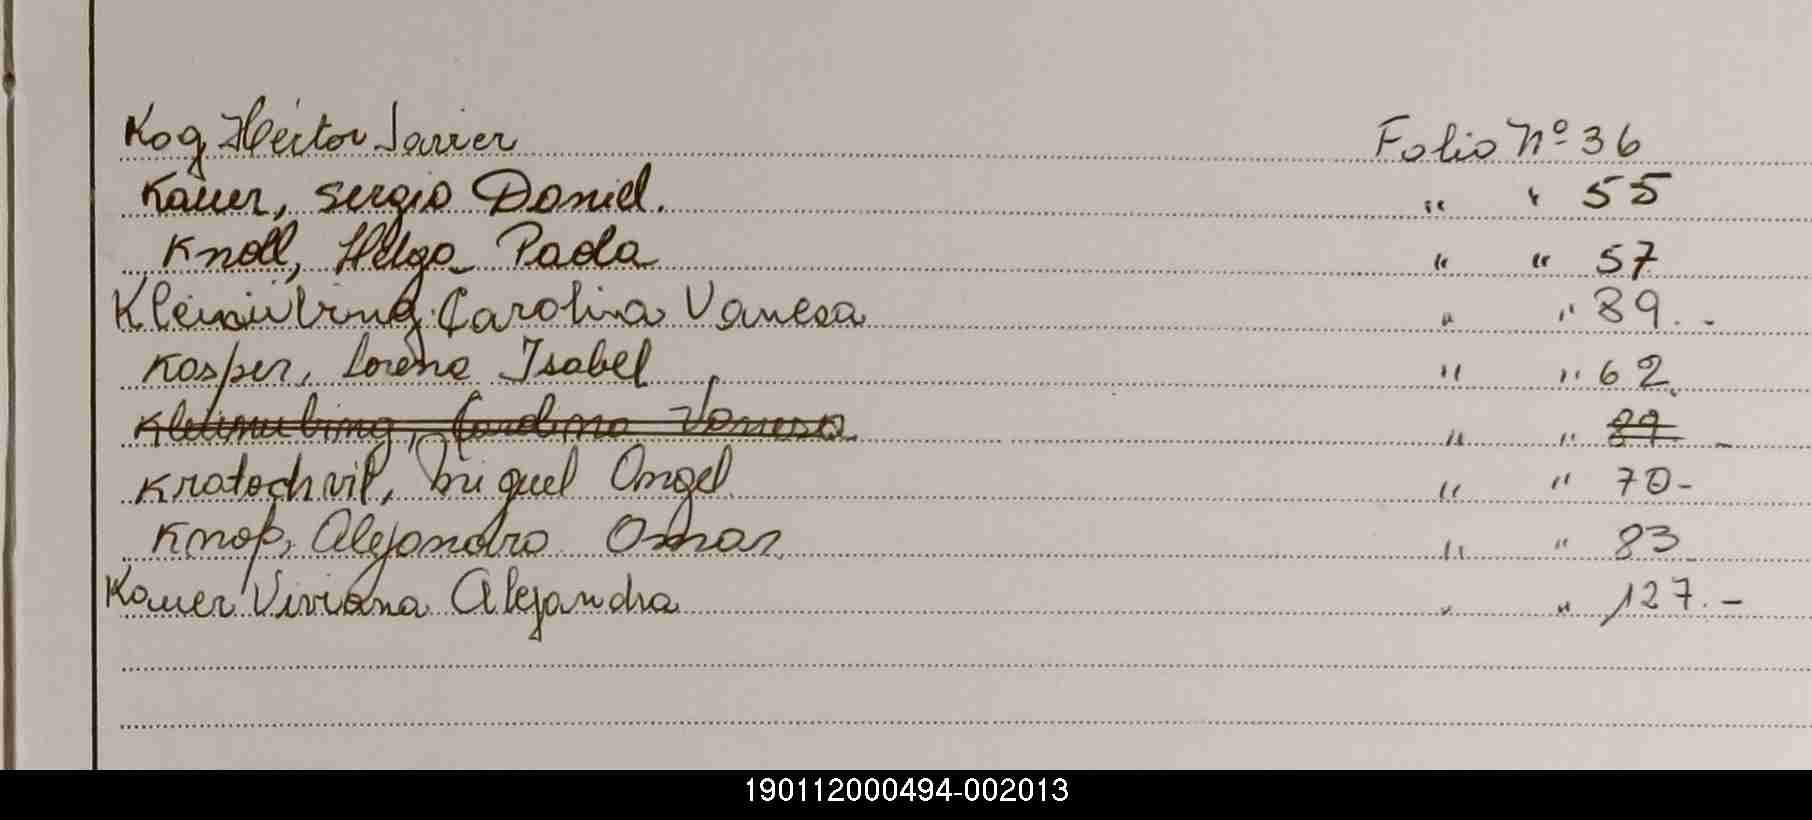 Kog Héctor Javier Folio Nº 36
Kauer, Sergio Daniel. " " 55
Knoll, Helga Paola " " 57
Kleinübing Carolina Vanesa " " 89.-
Kasper, Lorena Isabel " " 62.
Kleinubing, Carolina Vanesa " " 89 -
Kratochvil, Miguel Angel " " 70-
Knop, Alejandro Omar " " 83
Kauer Viviana Alejandra " " 127.-
190112000494-002013